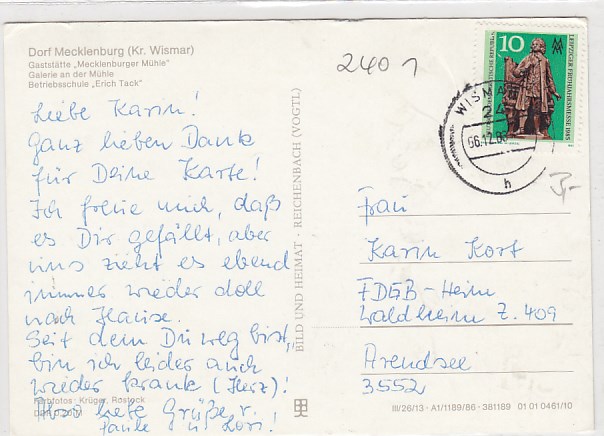 Dorf Mecklenburg (Kr. Wismar)
Gaststätte „Mecklenburger Mühle"
Galerie an der Mühle
Betriebsschule „Erich Tack"
2401
10
LEIPZIGER FRÜHJAHRSMESSE
WISMAR
24
h
3,-
Liebe Karin!
Ganz lieben Dank
für Deine Karte!
Ich freue mich, daß
es Dir gefällt, aber
uns zieht es ebend
immer wieder doll
nach Hause.
Seit dem Du weg bist,
bin ich leider auch
wieder krank (Herz)!
liebe Grüße v.
Farbfotos: Krüger, Rostock
u.
BILD UND HEIMAT · REICHENBACH (VOGTL)
Frau
Karin Kort
FDGB-Heim
Waldheim Z. 409
Arendsee
3552
III/26/13 · A1/1189/86 · 381189 01 01 0461/10